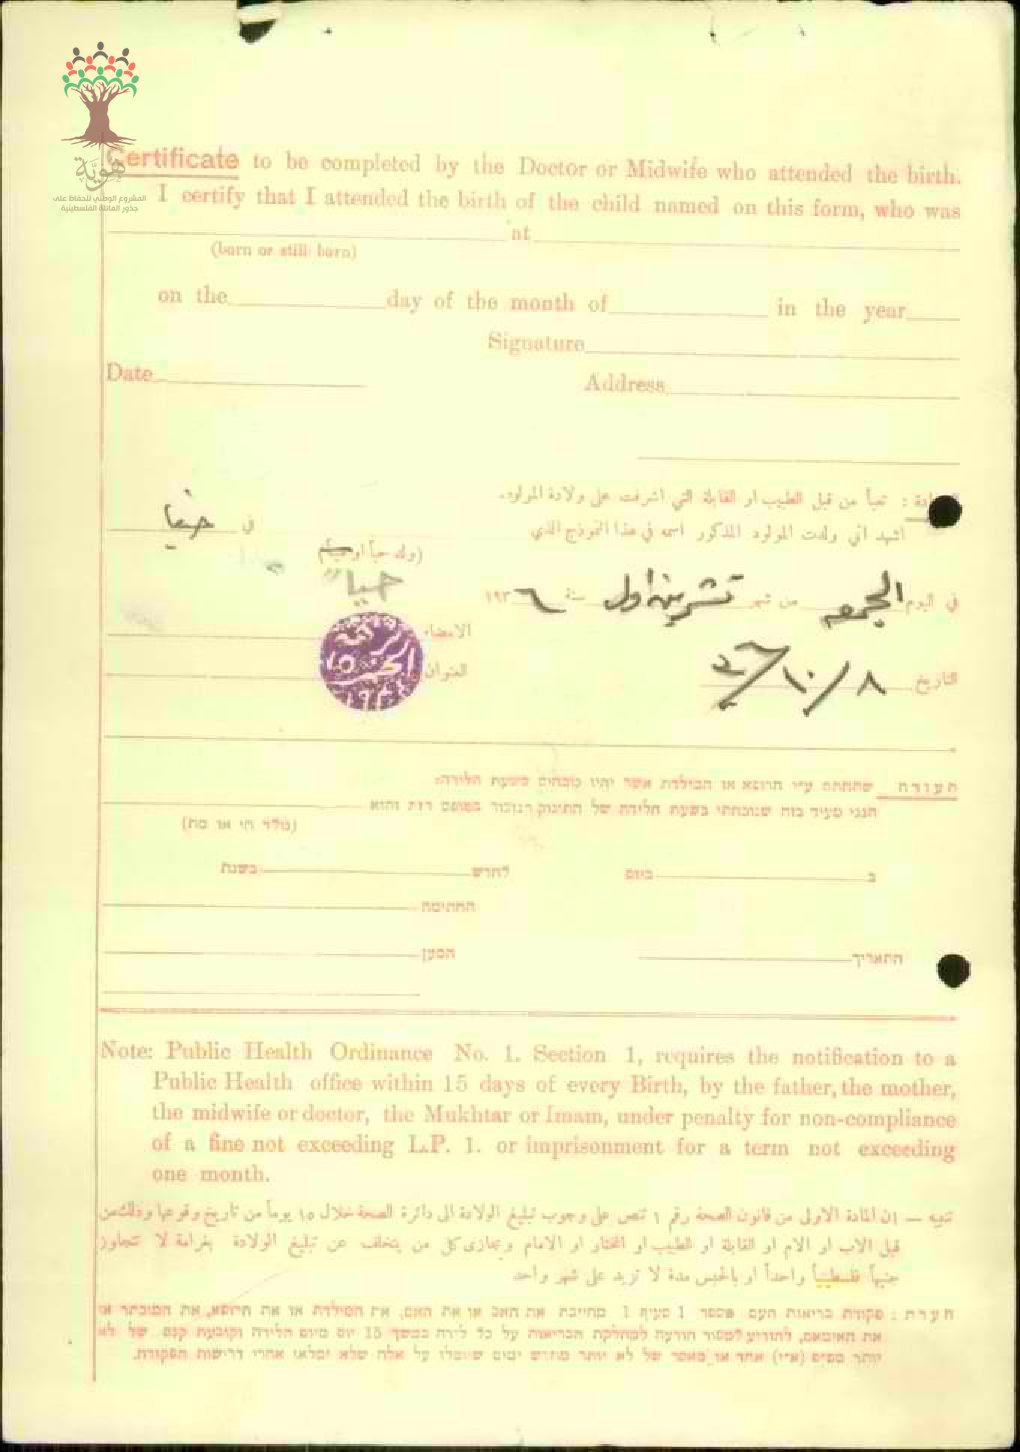 هوية
المشروع الوطني للحفاظ على
جذور العائلة الفلسطينية
Certificate to be completed by the Doctor or Midwife who attended the birth.
I certify that I attended the birth of the child named on this form, who was
at
(born or still born)
on the day of the month of in the year
Signature
Date Address
تعبأ من قبل الطبيب او القابلة التي اشرفت على ولادة المولود.
اشهد اني ولدت المولود المذكور اسمه في هذا النموذج الذي
في حيفا
(ولد حياً او ميتاً)
حيا
في اليوم الجمعه من شهر تشرين اول سنة ١٩٣٦
الامضاء
العنوان
التاريخ ٨/١٠/٣٦
תעודה שתחתם ע״י הרופא או המילדת אשר יהיו נוכחים בשעת הלידה:
הנני מעיד בזה שנוכחתי בשעת הלידה של התינוק הנזכר בטופס הזה והוא
(נולד חי או מת)
ב ביום לחדש בשנת
החתימה
התאריך המען
Note: Public Health Ordinance No. 1. Section 1, requires the notification to a
Public Health office within 15 days of every Birth, by the father, the mother,
the midwife or doctor, the Mukhtar or Imam, under penalty for non-compliance
of a fine not exceeding L.P. 1. or imprisonment for a term not exceeding
one month.
تنبيه — إن المادة الاولى من قانون الصحة رقم ١ تنص على وجوب تبليغ الولادة الى دائرة الصحة خلال ١٥ يوماً من تاريخ وقوعها وذلك من
قبل الاب او الام او القابلة او الطبيب او المختار او الامام ويجازى كل من يتخلف عن تبليغ الولادة بغرامة لا تتجاوز
جنيهاً فلسطينياً واحداً او بالحبس مدة لا تزيد على شهر واحد
הערה: פקודת בריאות העם מספר 1 סעיף 1 מחייבת את האב או את האם, את המילדת או את הרופא, את המוכתר או
את האימאם, להודיע למשרד הבריאות על כל לידה במשך 15 יום מיום הלידה וקובעת קנס של לא
יותר